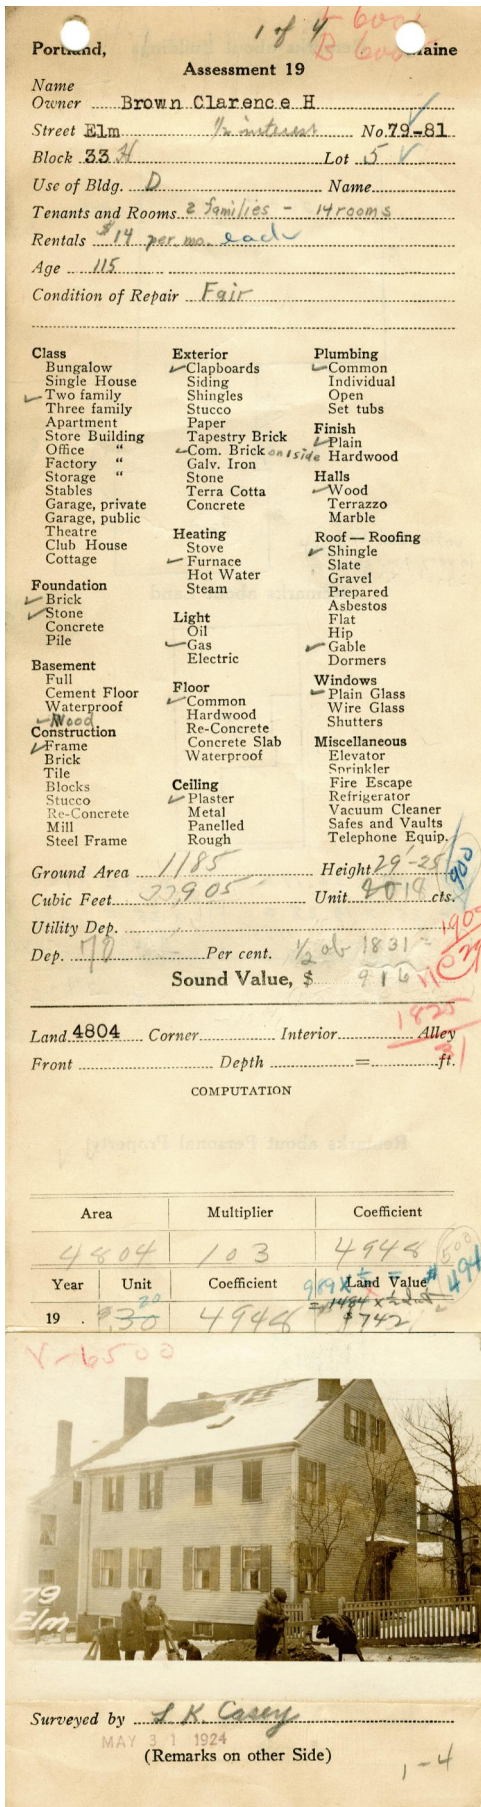 1 of 4
L-600
B 600
Portland, Maine
Assessment 19
Name
Owner Brown Clarence H
Street Elm 1/2 interest No. 79-81
Block 33 H Lot 5
Use of Bldg. D Name
Tenants and Rooms 2 families - 14 rooms
Rentals $14 per mo. each
Age 115
Condition of Repair Fair
Class
Bungalow
Single House
Two family
Three family
Apartment
Store Building
Office "
Factory "
Storage "
Stables
Garage, private
Garage, public
Theatre
Club House
Cottage
Foundation
Brick
Stone
Concrete
Pile
Basement
Full
Cement Floor
Waterproof
Wood
Construction
Frame
Brick
Tile
Blocks
Stucco
Re-Concrete
Mill
Steel Frame
Exterior
Clapboards
Siding
Shingles
Stucco
Paper
Tapestry Brick
Com. Brick on 1 side
Galv. Iron
Stone
Terra Cotta
Concrete
Heating
Stove
Furnace
Hot Water
Steam
Light
Oil
Gas
Electric
Floor
Common
Hardwood
Re-Concrete
Concrete Slab
Waterproof
Ceiling
Plaster
Metal
Panelled
Rough
Plumbing
Common
Individual
Open
Set tubs
Finish
Plain
Hardwood
Halls
Wood
Terrazzo
Marble
Roof — Roofing
Shingle
Slate
Gravel
Prepared
Asbestos
Flat
Hip
Gable
Dormers
Windows
Plain Glass
Wire Glass
Shutters
Miscellaneous
Elevator
Sprinkler
Fire Escape
Refrigerator
Vacuum Cleaner
Safes and Vaults
Telephone Equip.
Ground Area 1185 Height 29'-25
900
Cubic Feet 22905 Unit cts.
Utility Dep.
Dep. 70 Per cent. 1/2 of 1831 =
Sound Value, $ 916
1825
Land 4804 Corner Interior Alley
Front Depth = ft.
COMPUTATION
Area Multiplier Coefficient
4804 103 4948
500
Year Unit Coefficient Land Value
989 x 1/2 = $494
20
= 1484 x 1/2
19 . $30 4948 $742
V-6500
79
Elm
Surveyed by L. K. Casey
MAY 31 1924
(Remarks on other Side)
1-4